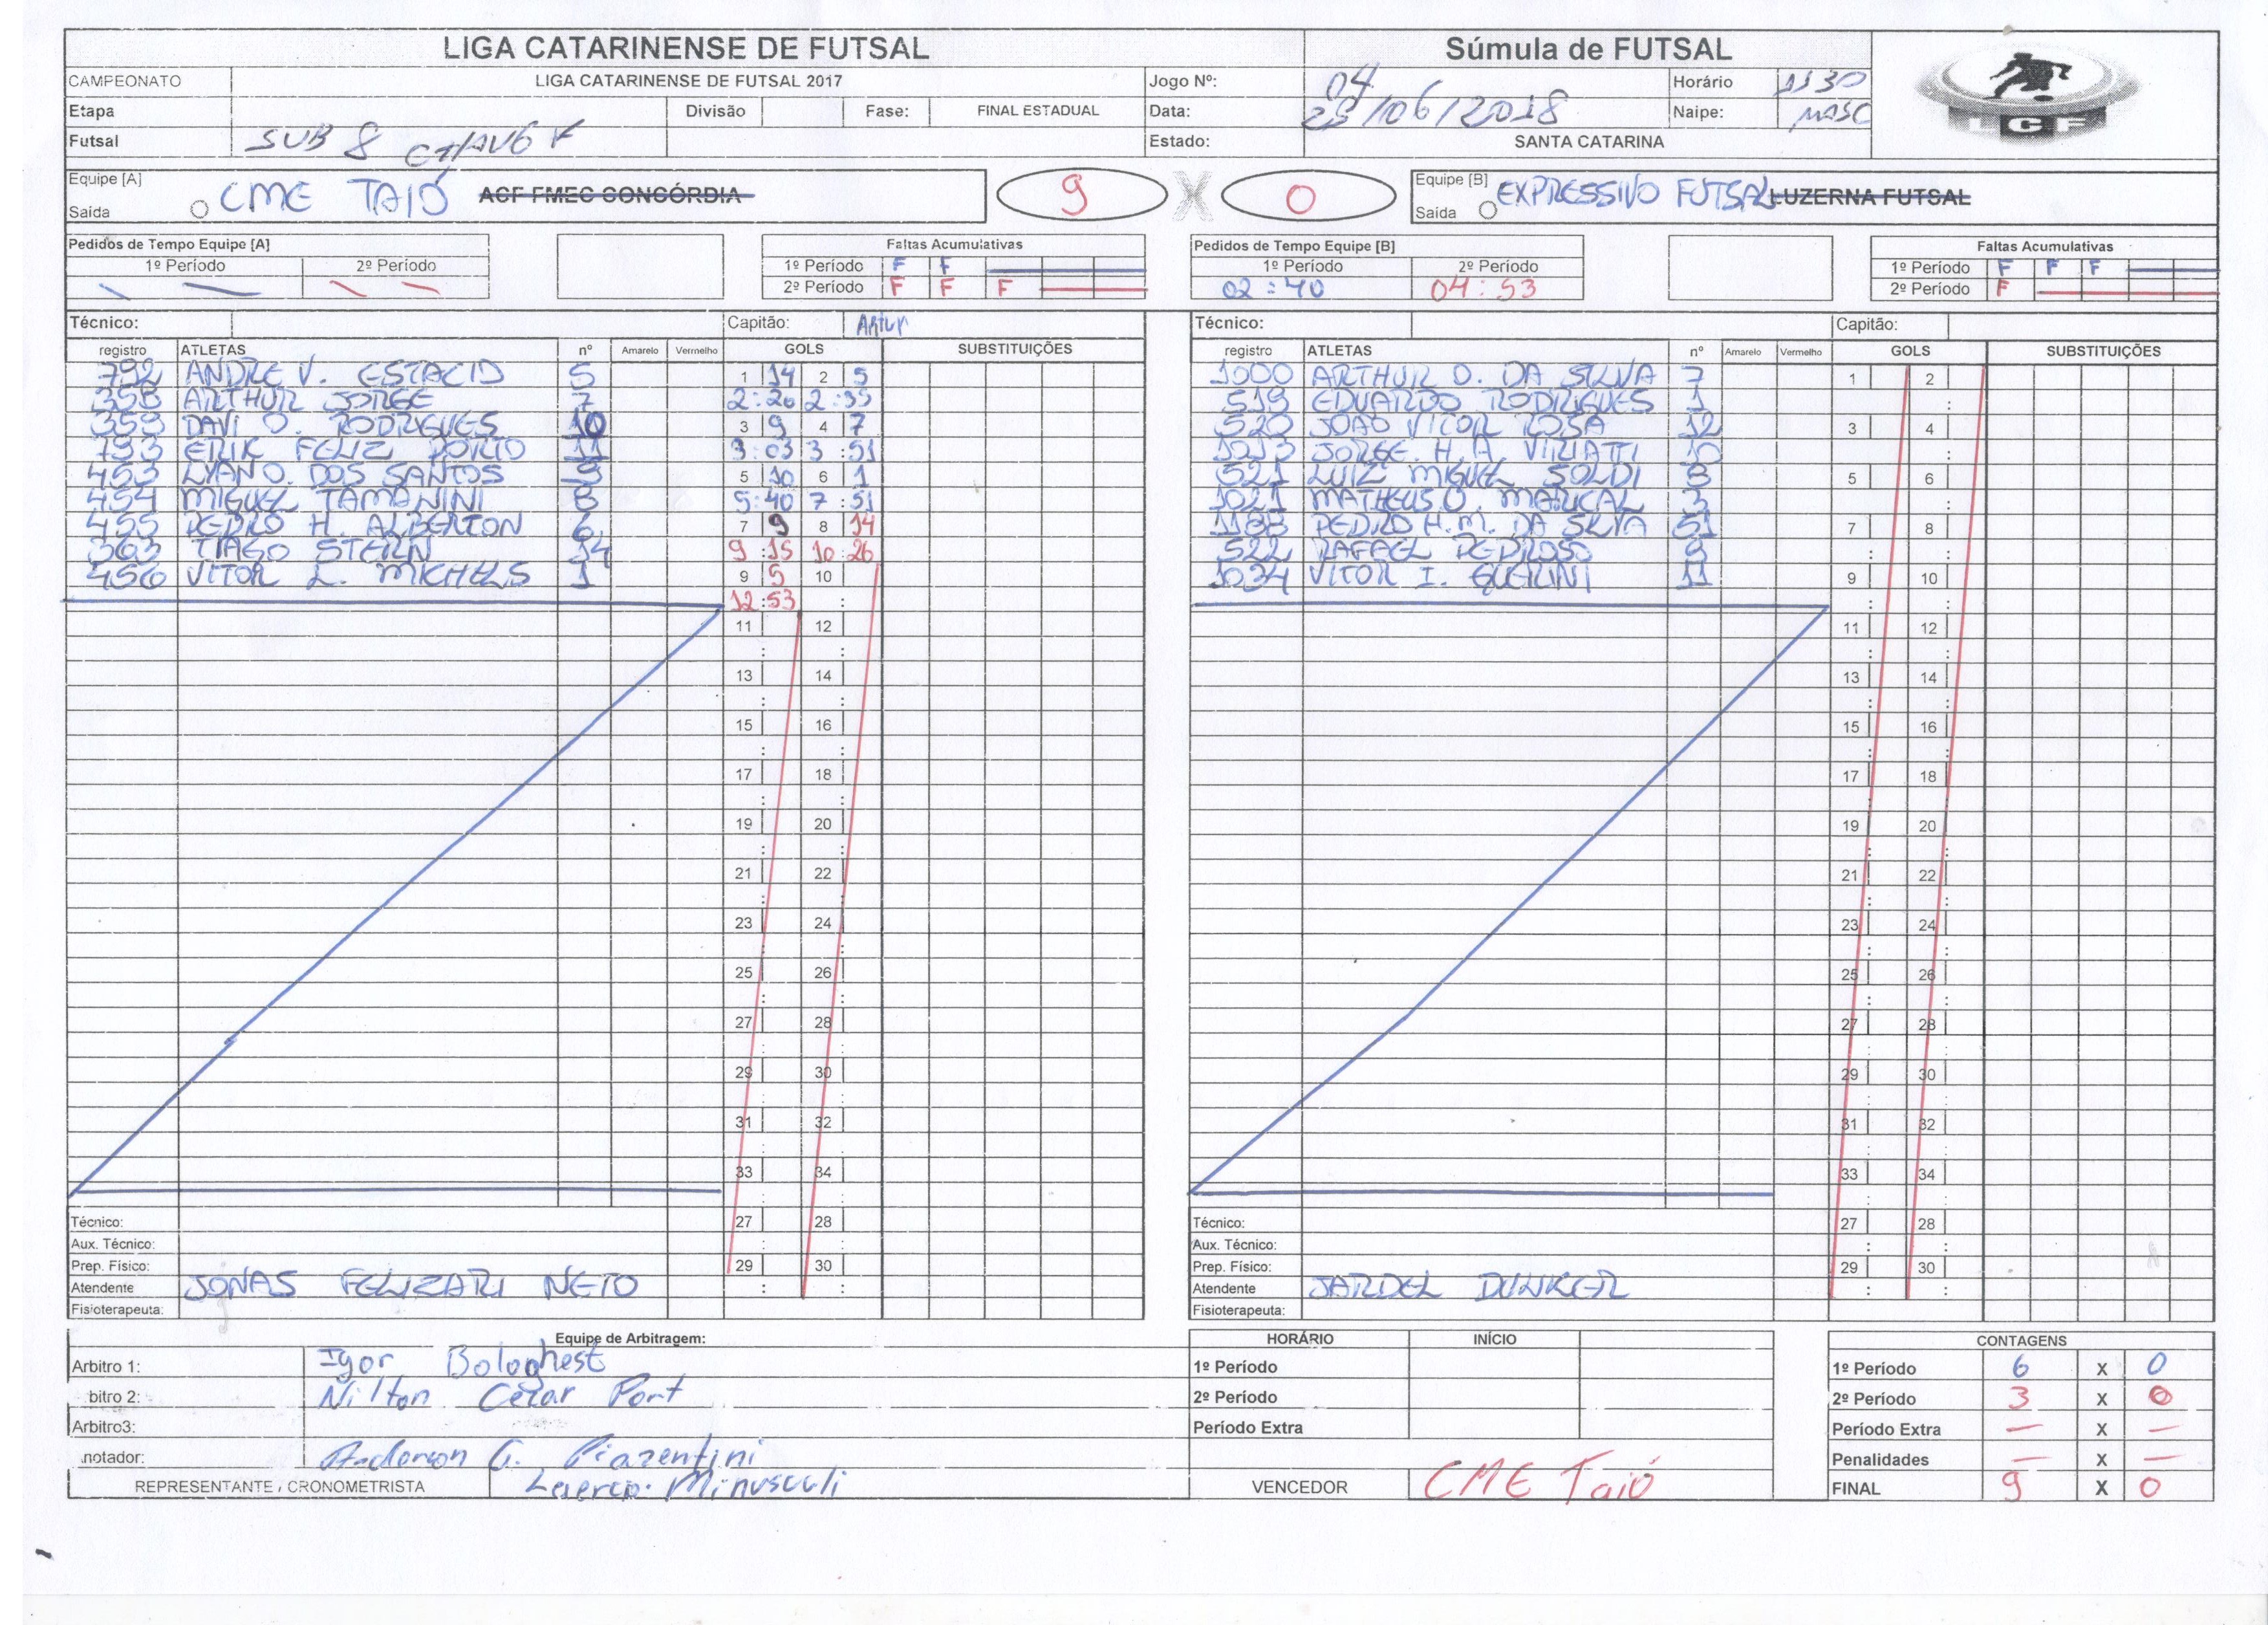 LIGA CATARINENSE DE FUTSAL Súmula de FUTSAL
CAMPEONATO LIGA CATARINENSE DE FUTSAL 2017 Jogo Nº: 04 Horário 1130
Etapa Divisão Fase: FINAL ESTADUAL Data: /06/2018 Naipe: MASC
Futsal SUB 8 Estado: SANTA CATARINA
LCF
Equipe [A] CME TAIÓ ACF FMEC CONCÓRDIA 9 X 0 Equipe [B] EXPRESSIVO FUTSAL LUZERNA FUTSAL
Saída Saída
Pedidos de Tempo Equipe [A] Faltas Acumulativas Pedidos de Tempo Equipe [B] Faltas Acumulativas
1º Período 2º Período 1º Período F F 1º Período 2º Período 1º Período F F F
2º Período F F F 02:40 04:53 2º Período F
Técnico: Capitão: Artur Técnico: Capitão:
registro ATLETAS nº Amarelo Vermelho GOLS SUBSTITUIÇÕES registro ATLETAS nº Amarelo Vermelho GOLS SUBSTITUIÇÕES
792 ANDRE V. ESTACIO 5 1 14 2 5 1000 ARTHUR O. DA SILVA 7 1 2
358 ARTHUR JORGE 7 2:26 2:35 519 EDUARDO RODRIGUES 1 :
359 DAVI O. RODRIGUES 10 3 9 4 7 520 JOAO VITOR ROSA 12 3 4
793 ERIK FELIZ PORTO 11 3:03 3:51 1013 JORGE. H. A. VIRIATTI 10 :
453 LYAN O. DOS SANTOS 9 5 10 6 1 521 LUIZ MIGUEL SOLDI 8 5 6
454 MIGUEL TAMANINI 8 5:40 7:51 1021 MATHEUS O. MARICAL 3 :
455 PEDRO H. ALBERTON 6 7 9 8 14 1188 PEDRO H.M. DA SILVA 51 7 8
363 TIAGO STERN 14 9:15 10:26 522 RAFAEL PEDROSO 9 : :
456 VITOR L. MICHELS 1 9 5 10 1034 VITOR I. GUERINI 11 9 10
12:53 : : :
11 12 11 12
: : : :
13 14 13 14
: : : :
15 16 15 16
: : : :
17 18 17 18
: : : :
19 20 19 20
: : : :
21 22 21 22
: : : :
23 24 23 24
: : : :
25 26 25 26
: : : :
27 28 27 28
: : : :
29 30 29 30
: : : :
31 32 31 32
: : : :
33 34 33 34
: : : :
Técnico: 27 28 Técnico: 27 28
Aux. Técnico: : : Aux. Técnico: : :
Prep. Físico: 29 30 Prep. Físico: 29 30
Atendente JONAS FELIZARI NETO : : Atendente JARDEL DUNKER : :
Fisioterapeuta: Fisioterapeuta:
Equipe de Arbitragem: HORÁRIO INÍCIO CONTAGENS
Arbitro 1: Igor Bologhest 1º Período 1º Período 6 X 0
bitro 2: Nilton Cezar Port 2º Período 2º Período 3 X 0
Arbitro3: Período Extra Período Extra — X —
notador: Anderson G. Piazentini Penalidades — X —
REPRESENTANTE / CRONOMETRISTA Laercio Minusculi VENCEDOR CME Taió FINAL 9 X 0